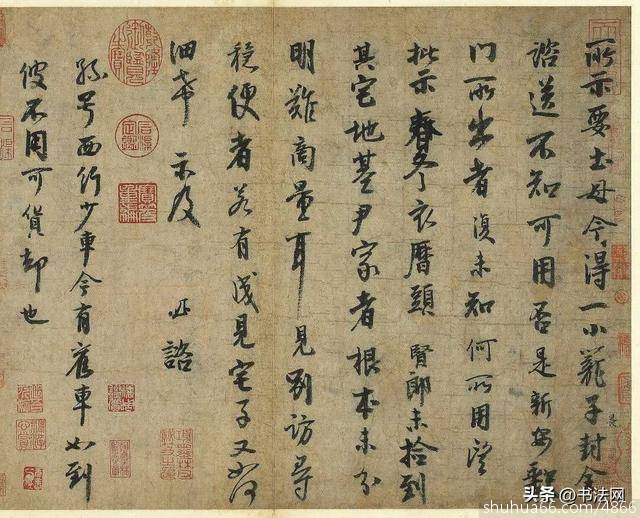 所示要土母今得一小籠子封全
諮送不知可用否是新安缺
門所出者復未知何所用望
批示春冬衣曆頭賢郎未撿到
其宅地基尹家者根本未分
明難商量耳見別訪尋
穩便者若有成見宅子又如何
細希示及 諮
孫号西行少車今有舊車如到
彼不用可貨却也
头条 @书法网
shuhua66.com/4866